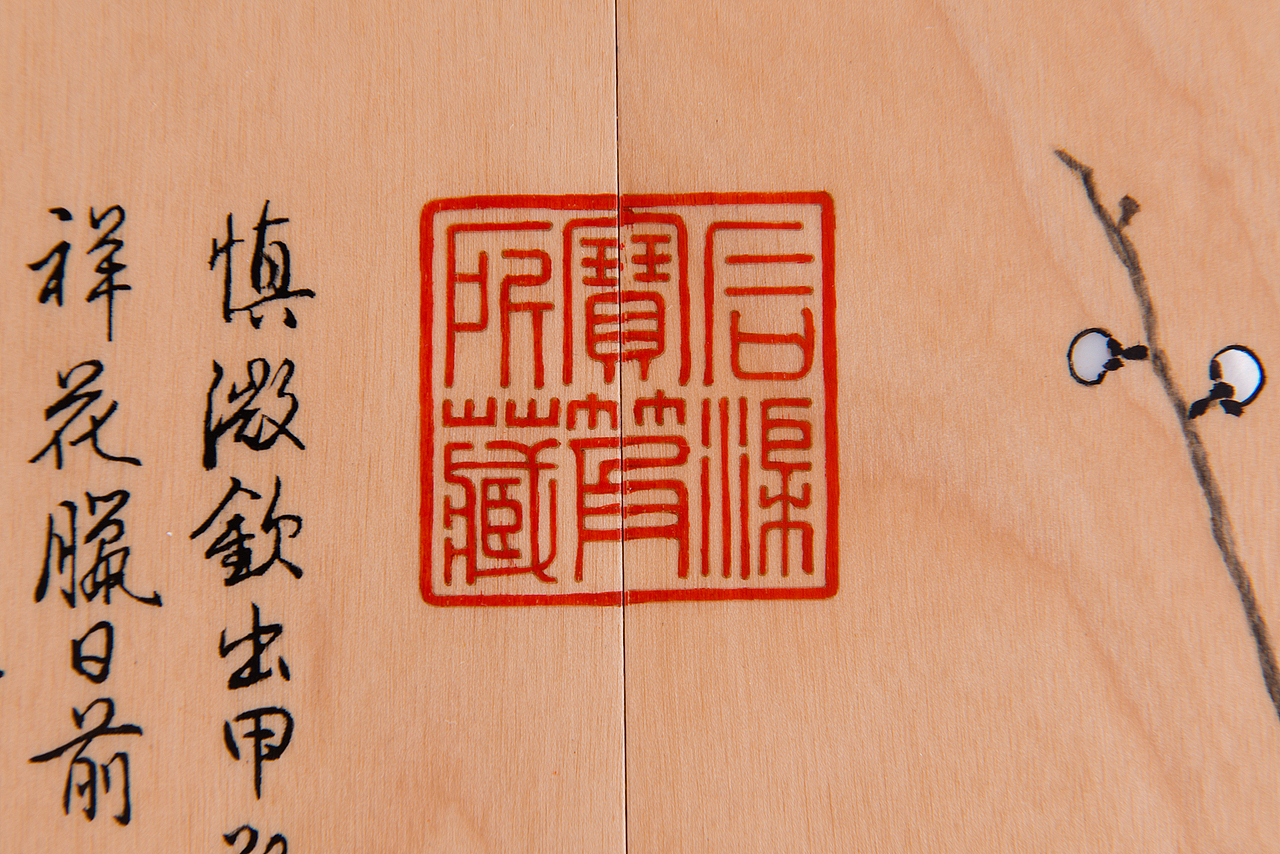 石渠
寶笈
所藏
慎微欽出甲
祥花臘日前